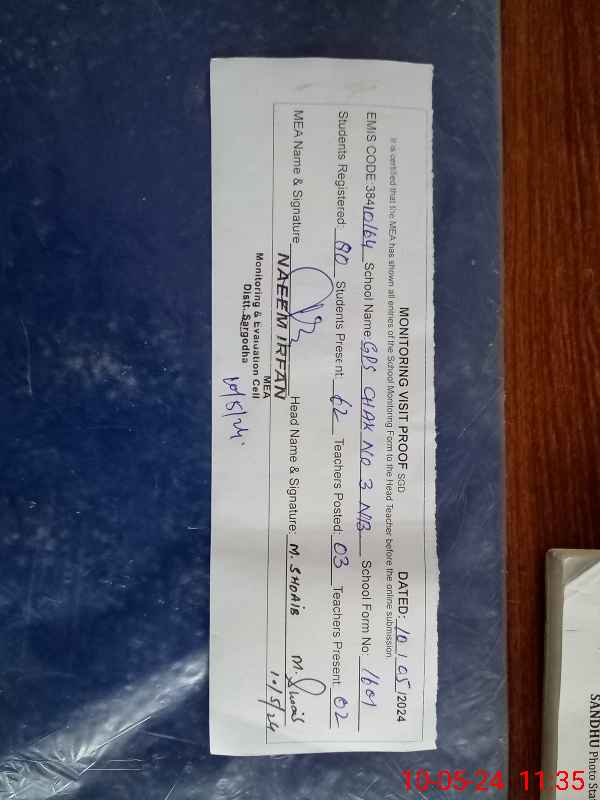 MONITORING VISIT PROOF SGD DATED: 10/05/2024
It is certified that the MEA has shown all entries of the School Monitoring Form to the Head Teacher before the online submission.
EMIS CODE:38410164 School Name: GPS CHAK NO 3 NB School Form No: 1601
Students Registered: 90 Students Present: 62 Teachers Posted: 03 Teachers Present: 02
MEA Name & Signature Head Name & Signature: M. SHOAIB M. Shoaib
10/5/24
NAEEM IRFAN
MEA
Monitoring & Evaluation Cell
Distt. Sargodha
10/5/24.
SANDHU Photo Sta
10-05-24 11:35